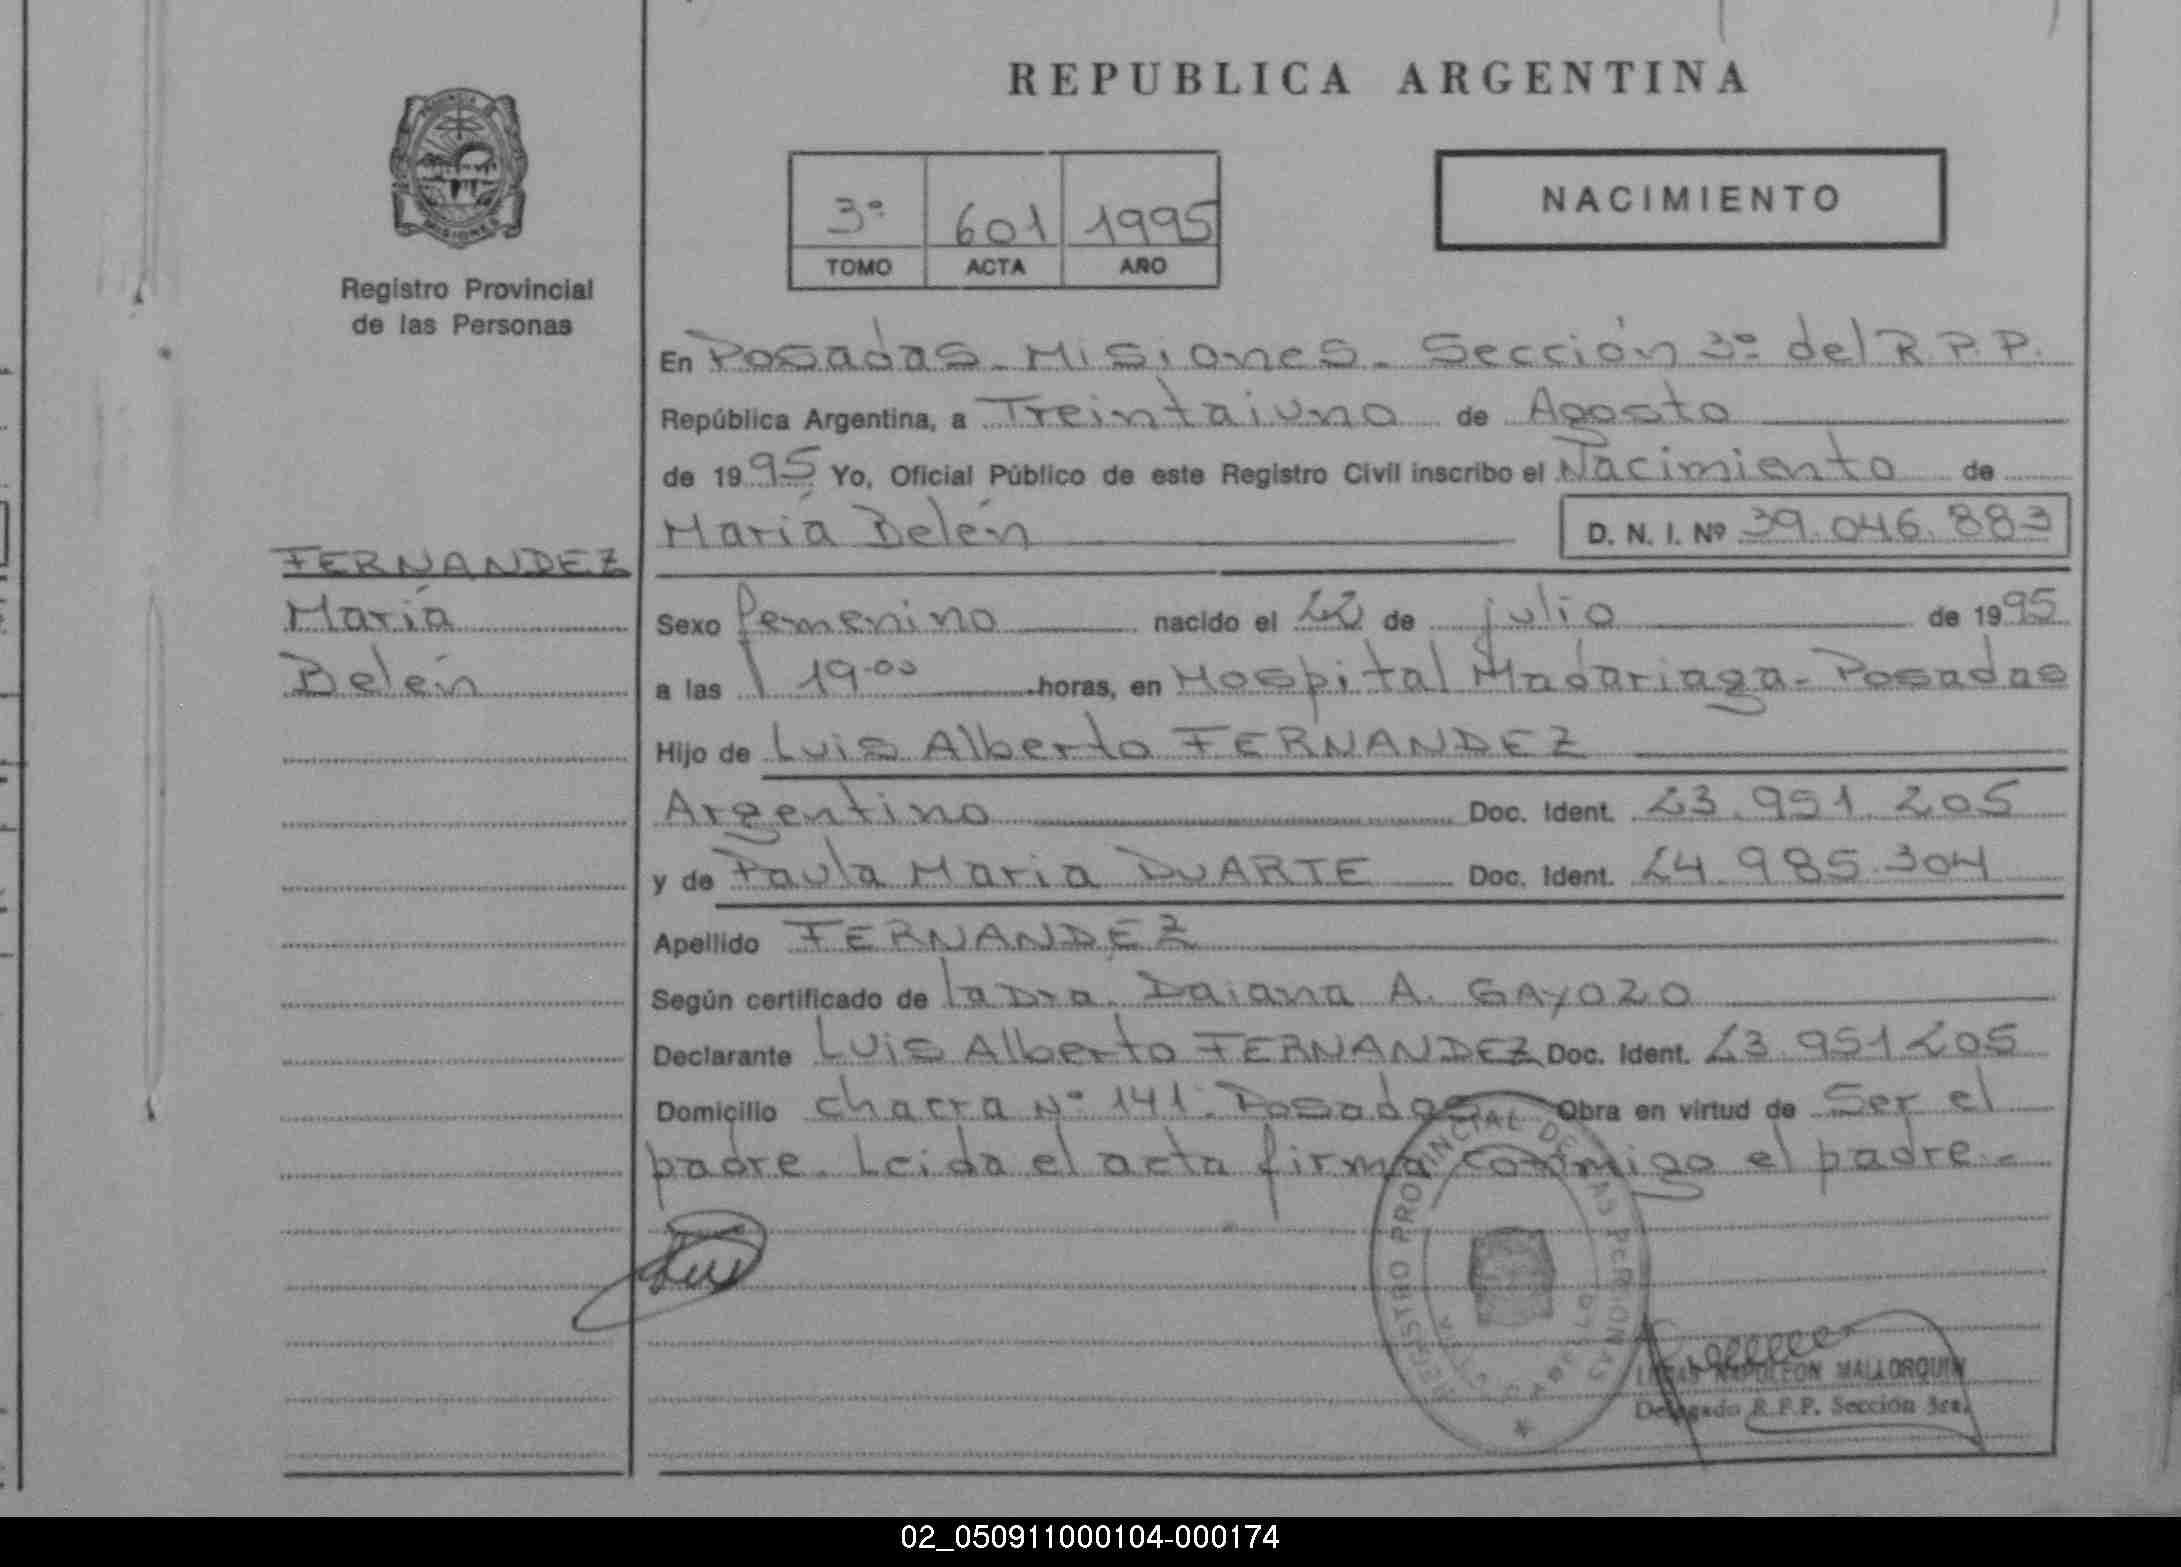 REPUBLICA ARGENTINA
NACIMIENTO
3º 601 1995
TOMO ACTA AÑO
PROVINCIA DE MISIONES
Registro Provincial
de las Personas
FERNANDEZ
María
Belén
En Posadas - Misiones - Sección 3º del R.P.P.
República Argentina, a Treintaiuno de Agosto
de 1995 Yo, Oficial Público de este Registro Civil inscribo el Nacimiento de
María Belén D. N. I. Nº 39.046.883
Sexo femenino nacido el 22 de julio de 1995
a las 19.00 horas, en Hospital Madariaga - Posadas
Hijo de Luis Alberto FERNANDEZ
Argentino Doc. Ident. 23.951.205
y de Paula Maria DUARTE Doc. Ident. 24.985.304
Apellido FERNANDEZ
Según certificado de la Dra. Daiana A. GAYOZO
Declarante Luis Alberto FERNANDEZ Doc. Ident. 23.951205
Domicilio chacra Nº 141. Posadas Obra en virtud de Ser el
padre. Leida el acta firma conmigo el padre.-
REGISTRO PROVINCIAL DE LAS PERSONAS
NAPOLEON MALLORQUIN
Delegado R.P.P. Sección 3ra.
02_050911000104-000174